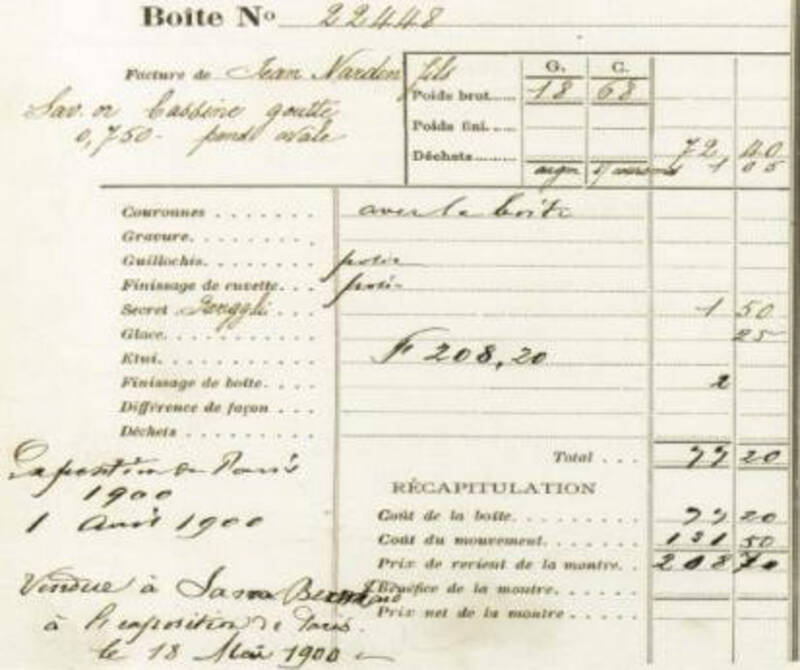 Boîte No 22448
Facture de Jean Nardin fils
Sav. or Bassine goutte
0,750 - fonds ovale
G. C.
Poids brut...... 18 68
Poids fini......
Déchets......... 72 40
argen 1 05
Couronnes . . . . . . . avec la boîte
Gravure. . . . . . . . .
Guillochis. . . . . . . . polie
Finissage de cuvette. . . . polie
Secret . . . 1 50
Glace. . . . . . . . . . 25
Etui. . . . . . . . . . . F 208,20
Finissage de boîte. . . . 2
Différence de façon . . .
Déchets . . . . . . . . .
Total . . . 77 20
Exposition de Paris
1900
1 Avril 1900
RÉCAPITULATION
Coût de la boîte. . . . . . . . . 77 20
Coût du mouvement. . . . . . 131 50
Prix de revient de la montre. . 208 70
Bénéfice de la montre. . . . . .
Prix net de la montre . . . . . .
Vendue à
à l'exposition de Paris.
le 18 Mai 1900